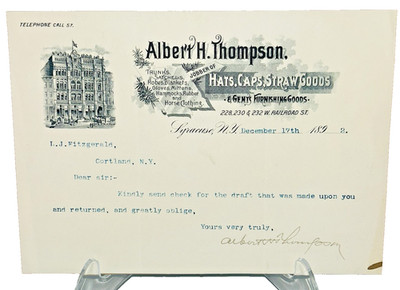 TELEPHONE CALL 57.
Albert H. Thompson.
JOBBER OF
TRUNKS,
SATCHELS,
Robes, Blankets,
Gloves, Mittens,
Hammocks, Rubber
and
Horse Clothing.
HATS, CAPS, STRAW GOODS
& GENTS FURNISHING GOODS.
228, 230 & 232 W. RAILROAD ST.
Syracuse, N.Y. December 17th 1892.
L.J. Fitzgerald,
Cortland, N.Y.
Dear sir:-
Kindly send check for the draft that was made upon you
and returned, and greatly oblige,
Yours very truly,
Albert H Thompson